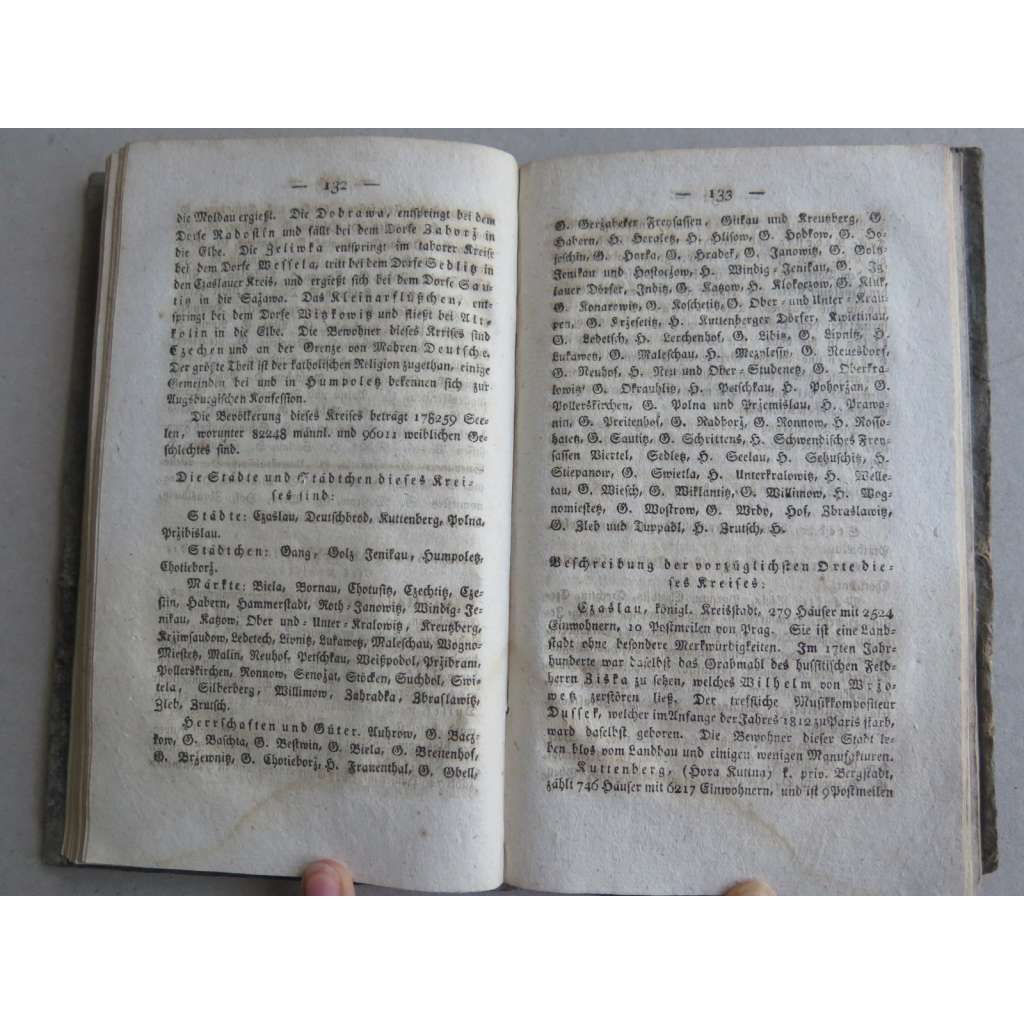 — 132 —
die Moldau ergießt. Die Dobrawa, entspringt bei dem
Dorfe Radostin und fällt bei dem Dorfe Zaborž in
die Elbe. Die Zeliwka entspringt im taborer Kreise
bei dem Dorfe Wessela, tritt bei dem Dorfe Sedlitz in
den Czaslauer Kreis, und ergießt sich bei dem Dorfe Sau-
titz in die Sazawa. Das Kleinarflüßchen, ent-
springt bei dem Dorfe Witzkowitz und fließt bei Alt-
kolin in die Elbe. Die Bewohner dieses Kreises sind
Czechen und an der Grenze von Mahren Deutsche.
Der größte Theil ist der katholischen Religion zugethan, einige
Gemeinden bei und in Humpoletz bekennen sich zur
Augsburgischen Konfession.
Die Bevölkerung dieses Kreises beträgt 178259 See-
len, worunter 82248 männl. und 96011 weiblichen Ge-
schlechtes sind.
Die Städte und Städtchen dieses Krei-
ses sind:
Städte: Czaslau, Deutschbrod, Kuttenberg, Polna,
Pržibislau.
Städtchen: Gang, Golz Jenikau, Humpoletz,
Chotieborž.
Märkte: Biela, Bornau, Chotusitz, Czechtitz, Cze-
stin, Habern, Hammerstadt, Roth-Janowitz, Windig-Je-
nikau, Katzow, Ober und-Unter-Kralowitz, Kreutzberg,
Kržiwsaudow, Ledetech, Lipnitz, Lukawetz, Maleschau, Wogno-
Miestetz, Malin, Neuhof, Petschkau, Weißpodol, Pržibram,
Pollerskirchen, Ronnow, Senožat, Stöcken, Suchdol, Swi-
tela, Silberberg, Willimow, Zahradka, Zbraslawitz,
Zleb, Zrutsch.
Herrschaften und Güter. Auhrow, G. Bacz-
kow, G. Baschta, G. Bestwin, G. Biela, G. Breitenhof,
G. Bržewnitz, G. Chotieborž, H. Frauenthal, G. Gbell,
— 133 —
G. Geržabeker Freysassen, Gitkau und Kreutzberg, G.
Habern, H. Heraletz, H. Hlisow, G. Hodkow, G. Ho-
jeschin, G. Horka, G. Hradek, G. Janowitz, G. Goltz-
Jenikau und Hostorzow, H. Windig-Jenikau, G. Jg-
lauer Dörfer, Inditz, G. Katzow, H. Klokoczow, G. Kluk,
G. Konarowitz, G. Koschetitz, G. Ober-und Unter-Krau-
pen, G. Kržesetitz, H. Kuttenberger Dörfer, Kwietinau,
G. Ledetsch, H. Lerchenhof, G. Libitz, G. Lipnitz, H.
Lukawetz, G. Maleschau, H. Mezylesitz, G. Neuesdorf,
G. Neuhof, H. Neu und Ober-Studenetz, G. Oberkra-
lowitz, G. Okrauhlitz, H. Petschkau, H. Pohoržan, G.
Pollerskirchen, G. Polna und Pržemislau, H. Prawo-
nin, G. Preitenhof, G. Radborž, G. Ronnow, G. Rosso-
hatetz, G. Sautitz, G. Schrittens, H. Schwendisches Frey-
sassen Viertel, Sedletz, H. Seelau, H. Sehuschitz, H.
Stiepanow, G. Swietla, H. Unterkralowitz, H. Welle-
tau, G. Wiesch, G. Wiklantitz, G. Willimow, H. Wog-
nomiestetz, G. Wostrow, G. Wrdy, Hof, Zbraslawitz,
G. Zleb und Tuppadl, H. Zrutsch, H.
Beschreibung der vorzüglichsten Orte die-
ses Kreises:
Czaslau, königl. Kreisstadt, 279 Häuser mit 2524
Einwohnern, 10 Postmeilen von Prag. Sie ist eine Land-
stadt ohne besondere Merkwürdigkeiten. Im 17ten Jahr-
hunderte war daselbst das Grabmahl des hussitischen Feld-
herrn Ziska zu sehen, welches Wilhelm von Wržo-
wetz zerstören ließ. Der trefliche Musikkompositeur
Dussek, welcher im Anfange der Jahres 1812 zu Paris starb,
ward daselbst geboren. Die Bewohner dieser Stadt le-
ben blos vom Landbau und einigen wenigen Manufakturen.
Kuttenberg, (Hora Kuttna) k. priv. Bergstadt,
zählt 746 Häuser mit 6217 Einwohnern, und ist 9 Postmeilen